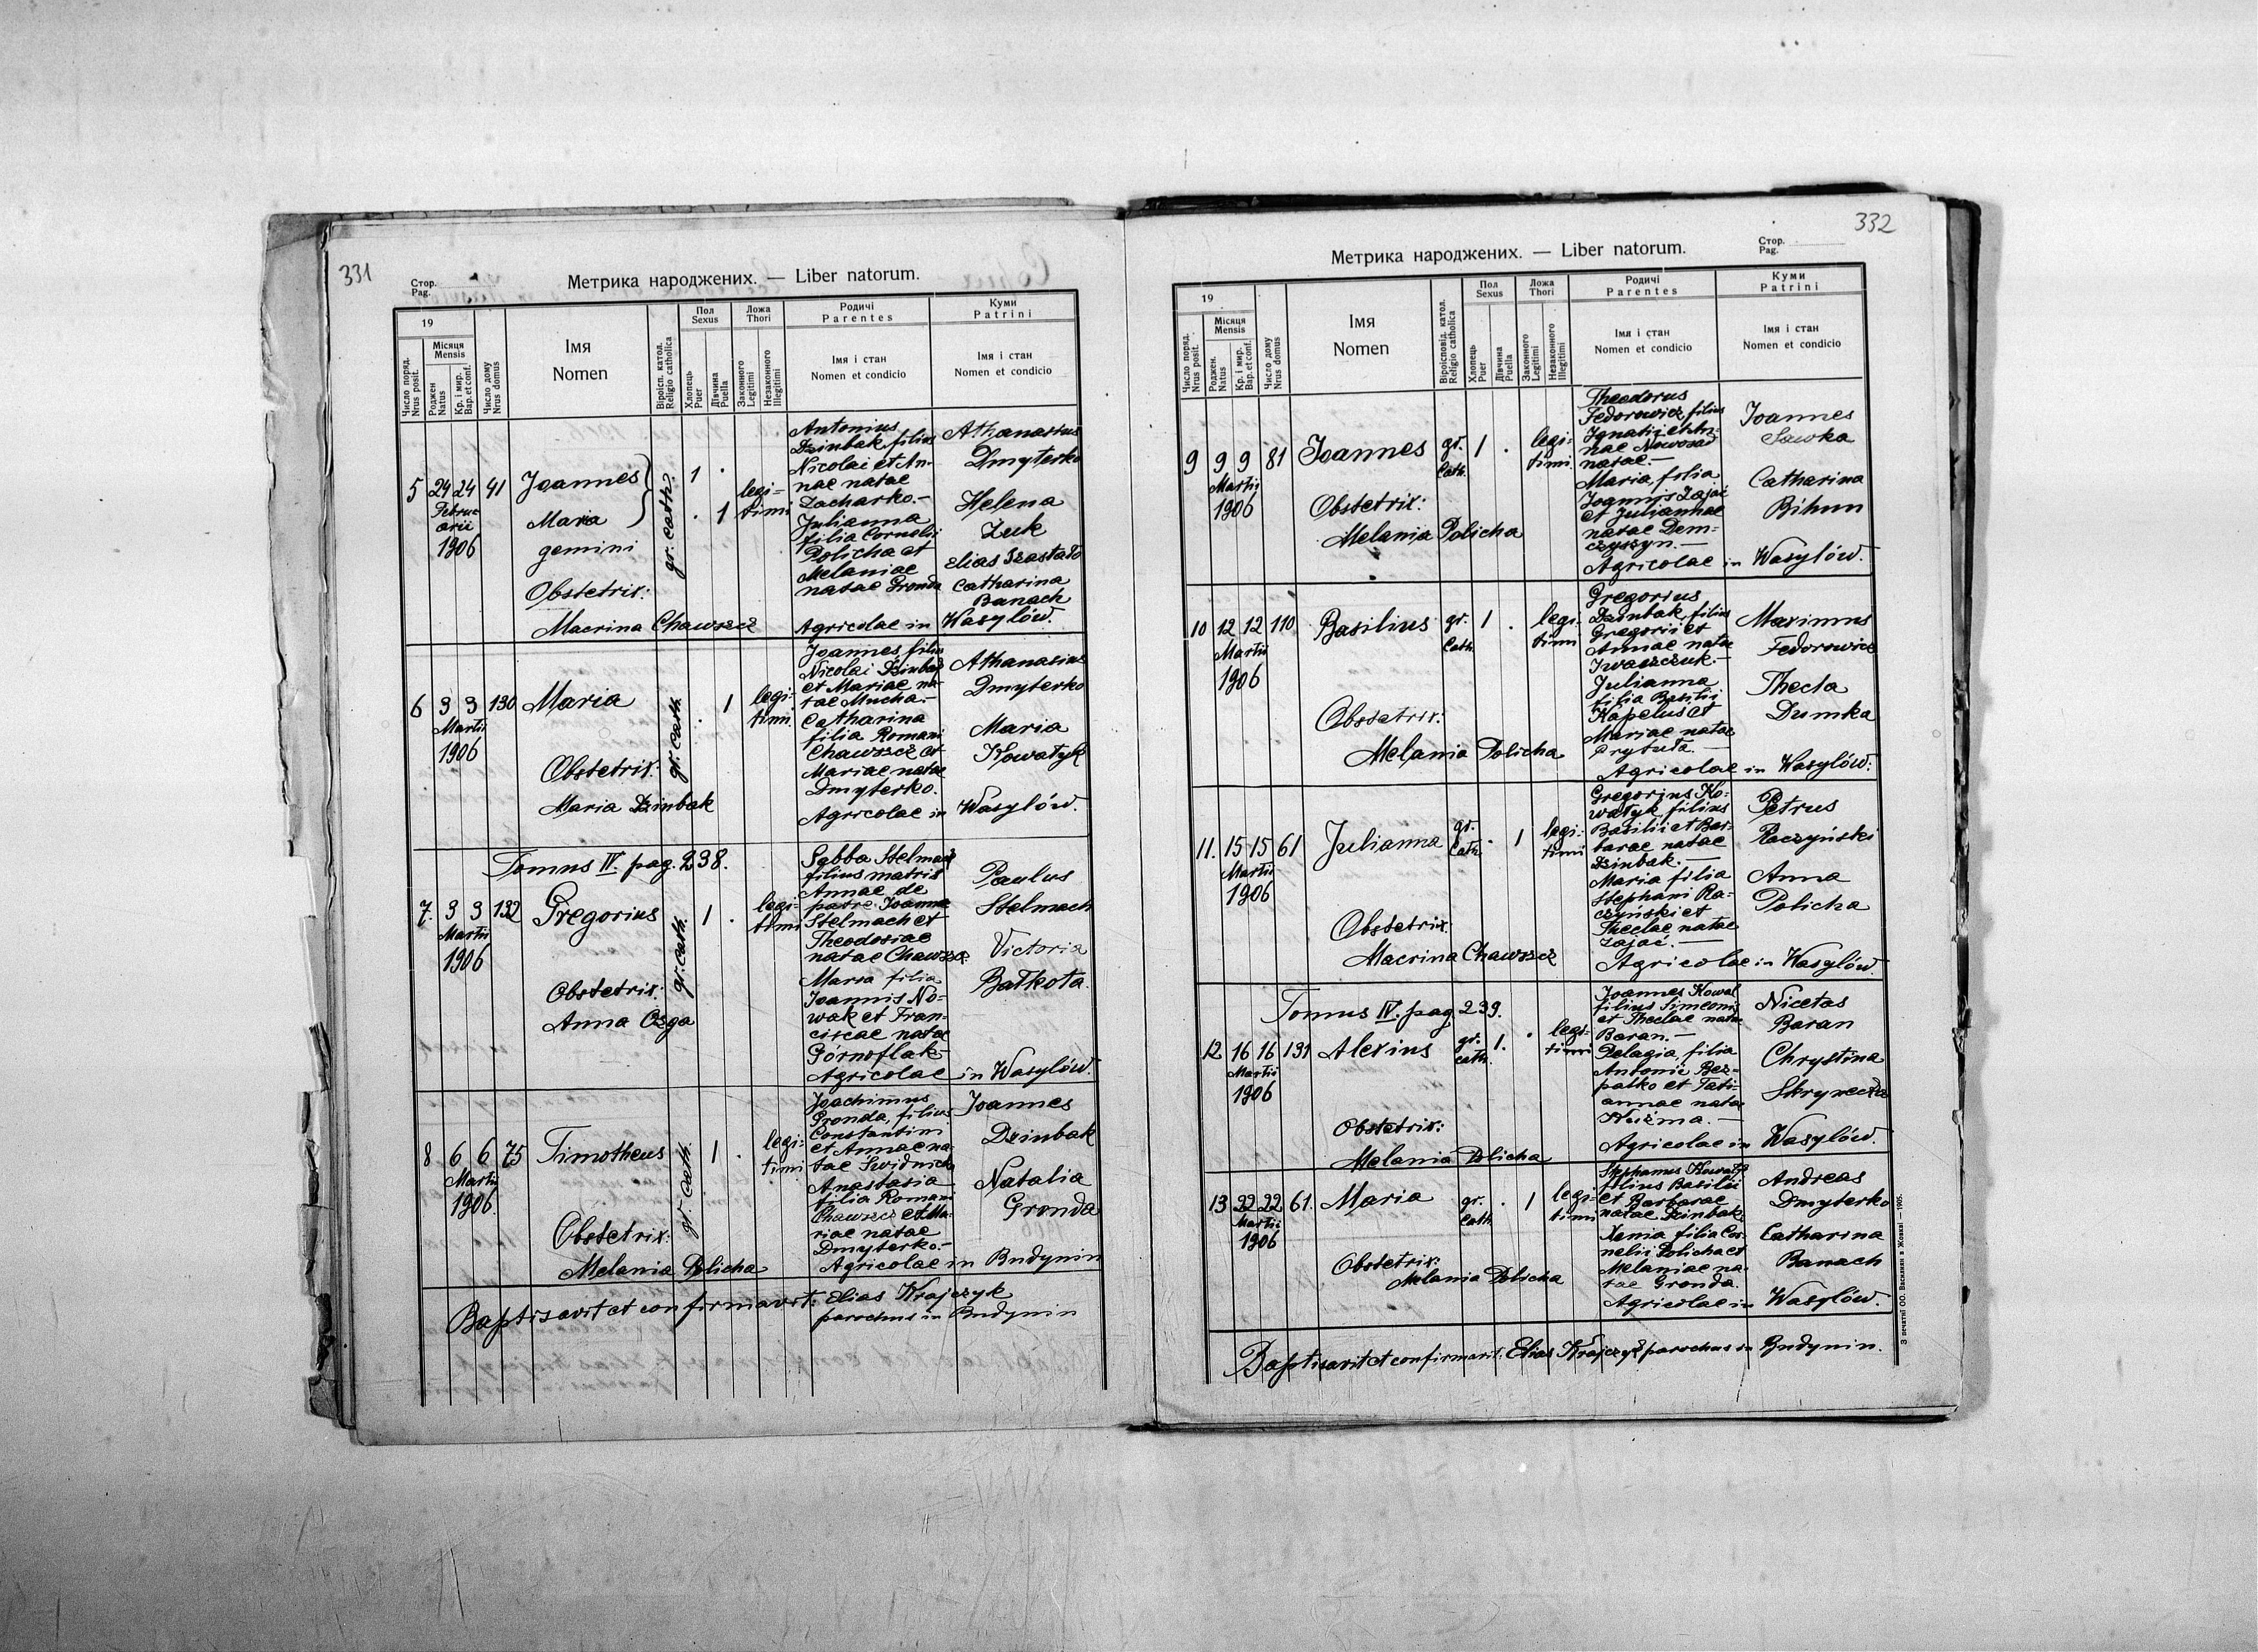 331
Стор.
Pag.
Метрика народжених. — Liber natorum.
19
Число поряд.
Nrus posit.
Місяця
Mensis
Роджен
Natus
Кр. і мир.
Bap. et conf.
Число дому
Nrus domus
Імя
Nomen
Віроісп. катол.
Religio catholica
Пол
Sexus
Хлопець
Puer
Дівчина
Puella
Ложа
Thori
Законного
Legitimi
Незаконного
Illegitimi
Родичі
Parentes
Імя і стан
Nomen et condicio
Куми
Patrini
Імя і стан
Nomen et condicio
5 24 24 41
Februarii
1906
Joannes
Maria
gemini
Obstetrix:
Macrina Chawszcz
gr. cath.
1 .
. 1
legi=
timi
Antonius
Dzinbak, filius
Nicolai et An-
nae natae
Zacharko.—
Julianna
filia Cornelii
Policha et
Melaniae
natae Gronda
Agricolae in Wasylów.
Athanasius
Dmyterko
Helena
Zuk
Elias
Catharina
Banach
6 3 3 130
Martii
1906
Maria
Obstetrix:
Maria Dzinbak
gr. cath.
. 1
legi-
timi
Joannes, filius
Nicolai Dzinbak
et Mariae na-
tae Mucha.—
Catharina
filia Romani
Chawszcz et
Mariae natae
Dmyterko.
Agricolae in Wasylów.
Athanasius
Dmyterko
Maria
Kowatyk
Tomus IV. pag. 238.
7. 3 3 132
Martii
1906
Gregorius
Obstetrix:
Anna Ozga
gr. cath.
1 .
legi-
timi
Sabba Stelmach
filius matris
Annae de
patre Joanne
Stelmach et
Theodosiae
natae Chawszcz
Maria filia
Joannis No-
wak et Fran-
ciscae natae
Górnoflak
Agricolae in Wasylów.
Paulus
Stelmach
Victoria
Bałkota
8 6 6 75
Martii
1906.
Timotheus
Obstetrix:
Melania Policha
gr. cath.
1 .
legi=
timi
Joachimus
Gronda, filius
Constantini
et Annae na-
tae Swidnicka
Anastasia
filia Romani
Chawszcz et Ma-
riae natae
Dmyterko.—
Agricolae in Budynin
Joannes
Dzinbak
Natalia
Gronda
Baptisavit et confirmavit: Elias Krajczyk
parochus in Budynin
332
Метрика народжених. — Liber natorum.
Стор.
Pag.
19
Число поряд.
Nrus posit.
Місяця
Mensis
Роджен.
Natus
Кр. і мир.
Bap. et conf.
Число дому
Nrus domus
Імя
Nomen
Віросповід. катол.
Religio catholica
Пол
Sexus
Хлопець
Puer
Дівчина
Puella
Ложа
Thori
Законного
Legitimi
Незаконного
Illegitimi
Родичі
Parentes
Імя і стан
Nomen et condicio
Куми
Patrini
Імя і стан
Nomen et condicio
9 9 9 81
Martii
1906
Joannes
Obstetrix:
Melania Policha
gr.
Cath.
1 .
legi-
timi
Theodorus
Fedorowicz, filius
Ignatii et An-
nae Nowosad
natae.—
Maria filia
Joannis Zajac
et Juliannae
natae Dem=
czyszyn.—
Agricolae in Wasylów.
Joannes
Sawka
Catharina
Bihun
10 12 12 110
Martii
1906
Basilius
Obstetrix:
Melania Policha
gr.
Cath
1 .
legi-
timi
Gregorius
Dzinbak, filius
Gregorii et
Annae natae
Iwaszczuk.—
Julianna
filia Basilii
Kapelus et
Mariae natae
Prytuła.—
Agricolae in Wasylów.
Maximus
Fedorowicz
Thecla
Dumka
11. 15 15 61
Martii
1906
Julianna
Obstetrix:
Macrina Chawszcz
gr.
Cath.
. 1
legi-
timi
Gregorius Ko-
watyk, filius
Basilii et Bar-
barae natae
Dzinbak.—
Maria filia
Stephani Ra-
czyński et
Theclae natae
Zając.—
Agricolae in Wasylów.
Petrus
Raczyński
Anna
Policha
Tomus IV. pag 239.
12 16 16 131
Martii
1906
Alexius
Obstetrix:
Melania Policha
gr.
cath.
1. .
legi-
timi
Joannes Kowal
filius Simeonis
et Theclae natae
Baran.—
Pelagia, filia
Antonii Bez-
palko et Tati-
annae natae
Kuźma.—
Agricolae in Wasylów.
Nicetas
Baran
Chrystina
13 22 22 61.
Martii
1906
Maria
Obstetrix:
Melania Policha
gr.
Cath
. 1
legi-
timi
Stephanus Kowatyk
filius Basilii
et Barbarae
natae Dzinbak
Xenia filia Cor-
nelii Policha et
Melaniae na-
tae Gronda.
Agricolae in Wasylów.
Andreas
Dmyterko
Catharina
Banach
Baptisavit et confirmavit: Elias Krajczyk parochus in Budynin.
З печатнї ОО. Василиян в Жовкві — 1905.